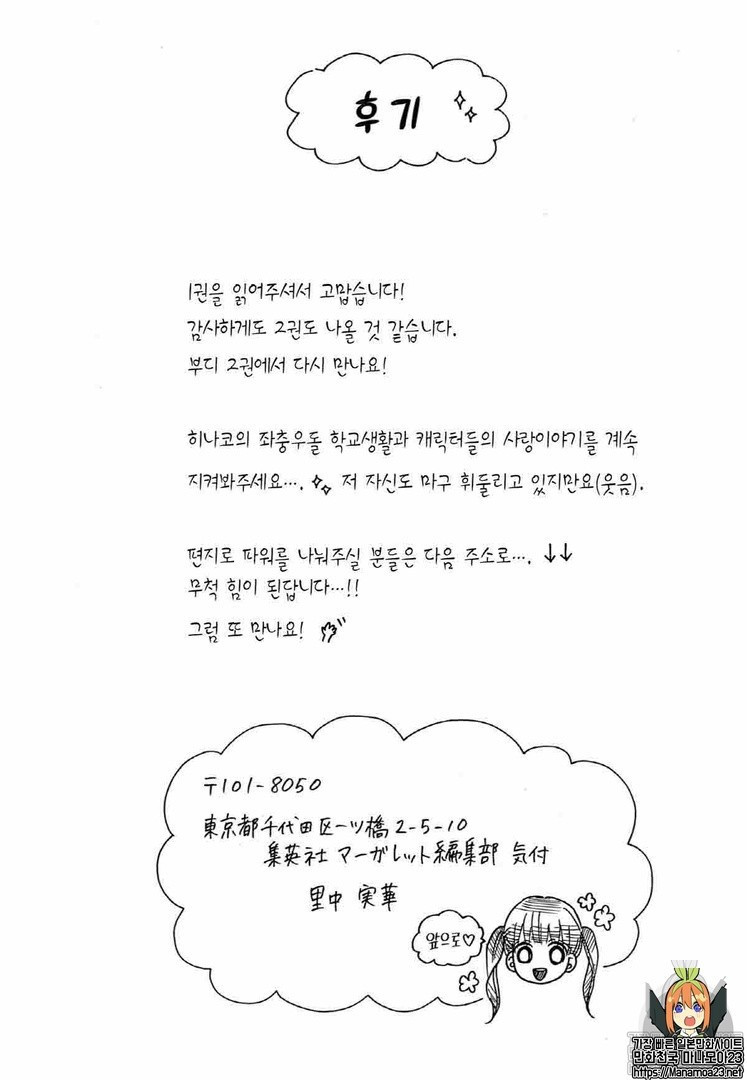 후기
1권을 읽어주셔서 고맙습니다!
감사하게도 2권도 나올 것 같습니다.
부디 2권에서 다시 만나요!
히나코의 좌충우돌 학교생활과 캐릭터들의 사랑이야기를 계속
지켜봐주세요…. 저 자신도 마구 휘둘리고 있지만요(웃음).
편지로 파워를 나눠주실 분들은 다음 주소로…. ↓↓
무척 힘이 된답니다…!!
그럼 또 만나요!
〒101-8050
東京都千代田区一ツ橋2-5-10
集英社 マーガレット編集部 気付
里中 実華
앞으로♡
가장 빠른 일본만화사이트
만화천국 마나모아23
https://Manamoa23.net